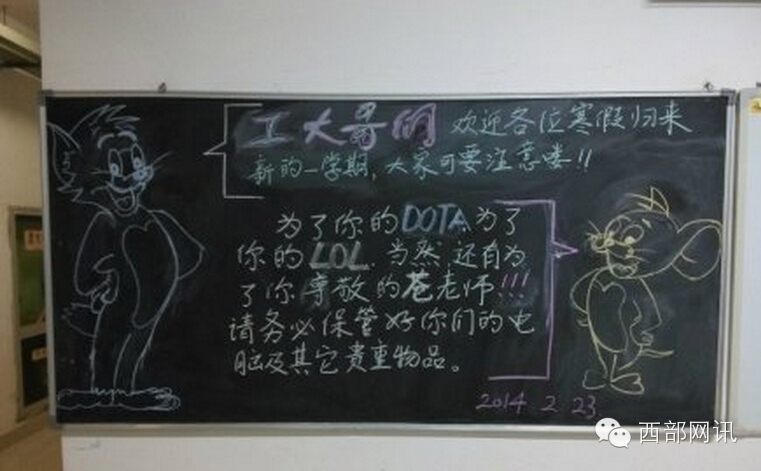 工大哥的 欢迎各位寒假归来
新的一学期,大家可要注意喽!!
为了你的DOTA.为了
你的LOL.当然,还有为
了你尊敬的苍老师!!!
请务必保管好你们的电
脑及其它贵重物品。
2014 2 23
西部网讯